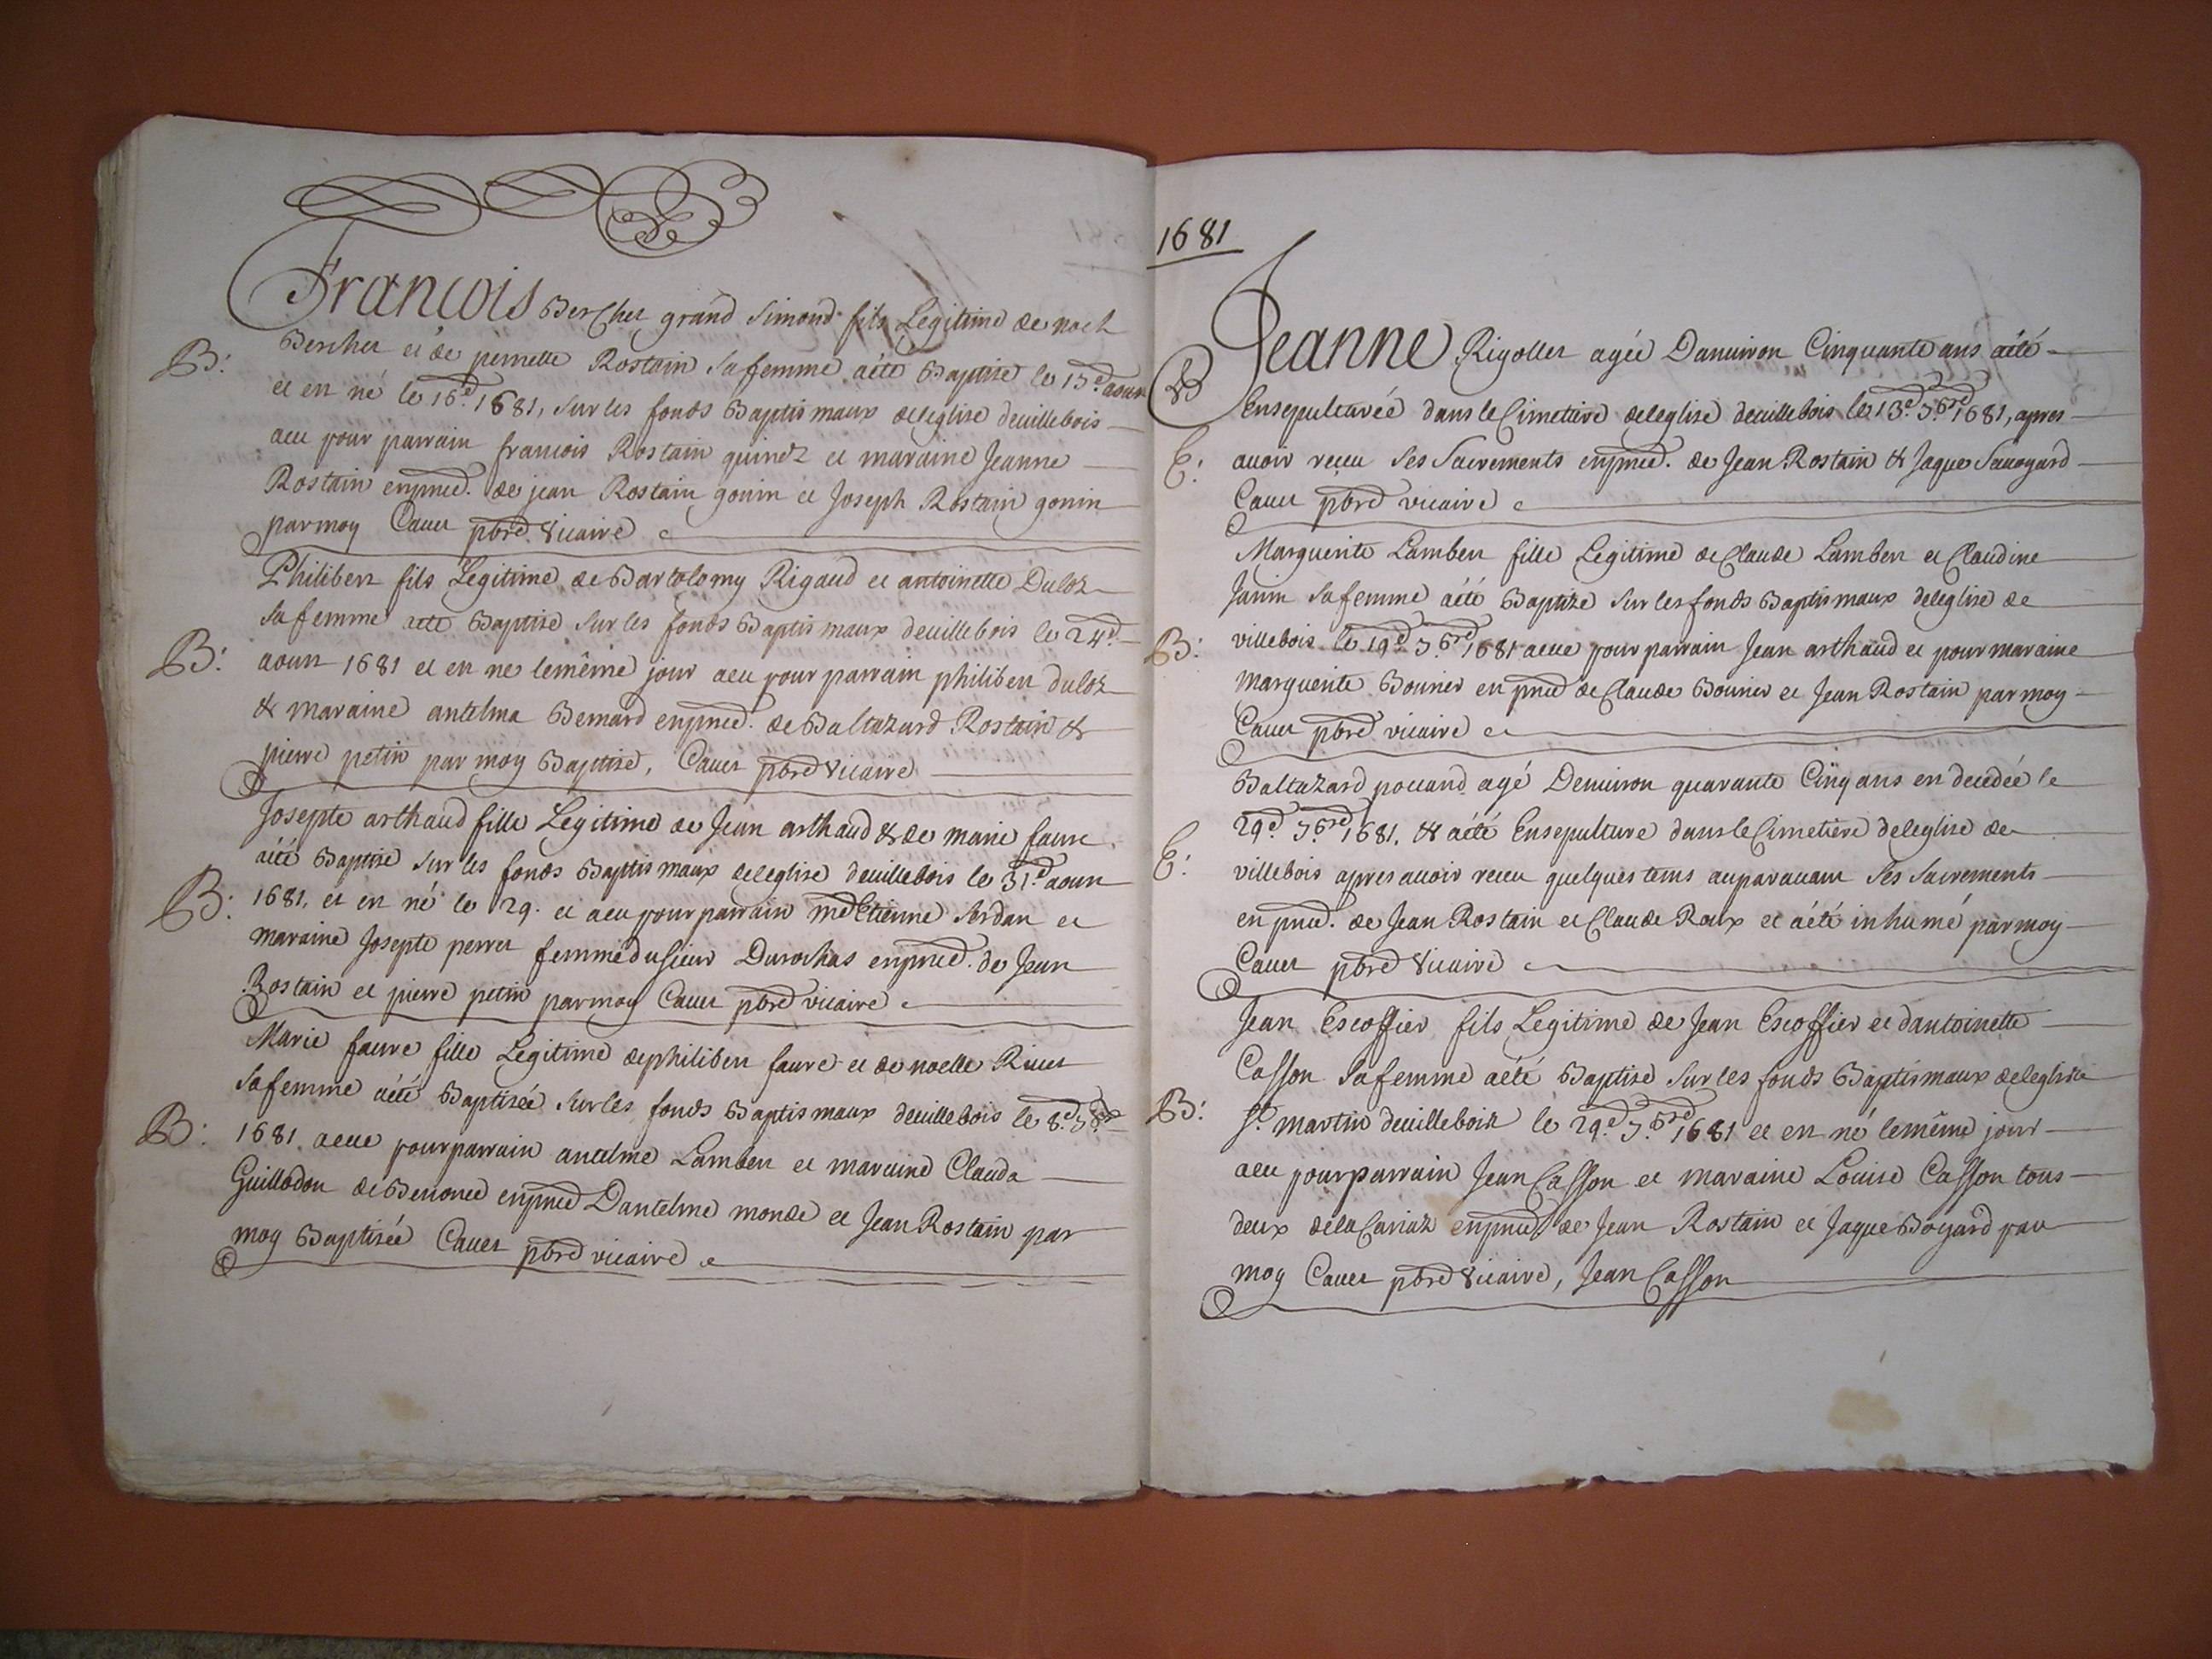 François Berchet grand Simond fils Legitime de noel
Berchet et de pernette Rostain sa femme aété Baptisé le 13e aoust
B:
et en né le 16e 1681, sur les fonds Baptismaux deleglise deuillebois
aeu pour parrain francois Rostain quinet et maraine Jeanne
Rostain enpnce. de jean Rostain gonin et Joseph Rostain gonin
parmoy Cauet pbre vicaire
Philibert fils Legitime de Bartolomy Rigaud et antoinette Duloz
sa femme aété Baptisé sur les fonds Baptismaux deuillebois le 24e
B:
aoust 1681 et en ne lemême jour aeu pour parrain philibert duloz
& maraine antelma Bernard enpnce. de Baltazard Rostain &
pierre petin par moy Baptisé, Cauet pbre vicaire
Josepte arthaud fille Legitime de Jean arthaud & de marie faure
aété Baptisé sur les fonds Baptismaux deleglise deuillebois le 31e aoust
B:
1681, et en né le 29. et aeu pour parrain me Etienne Sordan et
maraine Josepte perret femme du sieur Durochas enpnce. de Jean
Rostain et pierre petin parmoy Cauet pbre vicaire
Marie faure fille Legitime dephilibert faure et de noelle Riuet
sa femme aété Baptisée sur les fonds Baptismaux deuillebois le 8e 7bre
B:
1681 aeue pour parrain antelme Lambert et maraine Clauda
Guillodon de Benonce enpnce Dantelme monde et Jean Rostain par
moy Baptisée Cauet pbre vicaire
1681
Jeanne Rigollet agée Danuiron Cinquante ans aété
Ensepulturéé dans le Cimetiere deleglise deuillebois le 13e 7bre 1681, apres
E:
auoir reçeu ses Sacrements enpnce. de Jean Rostain & Jaque Sauoyard
Cauet pbre vicaire
Marguerite Lambert fille Legitime de Claude Lambert et Claudine
Janin sa femme aété Baptize sur les fonds Baptismaux deleglise de
B:
villebois le 19e 7bre 1681 aeue pour parrain Jean arthaud et pour maraine
marguerite Bourier en pnce de Claude Bourier et Jean Rostain par moy
Cauet pbre vicaire
Baltazard pouand agé Denuiron quarante Cinq ans en decedée le
29e 7bre 1681, & aété Ensepulture dans le Cimetière deleglise de
E:
villebois apres auoir receu quelques tems auparauant ses sacrements
en pnce. de Jean Rostain et Claude Roux et aété inhumé parmoy
Cauet pbre vicaire
Jean Escoffier fils Legitime de Jean Escoffier et dantoinette
Casson sa femme aété Baptisé sur les fonds Baptismaux deleglise
B:
St martin deuillebois le 29e 7bre 1681 et en né lemême jour
aeu pour parrain Jean Casson et maraine Louise Casson tous
deux dela Cariaz enpnce de Jean Rostain et Jaque Bogard par
moy Cauet pbre vicaire, Jean Casson